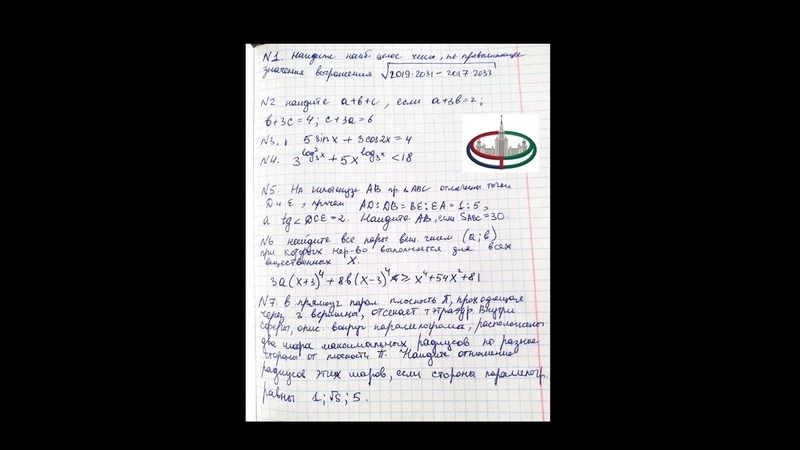 N1. Найдите наиб. целое число, не превышающее
значения выражения √2019·2031 – 2017·2033
N2 найдите a+b+c, если a+3b=2;
b+3c=4; c+3a=6
N3. 5 sinx + 3cos2x = 4
N4. 3^log₃²x + 5x^log₃x < 18
N5. На гипотенузе AB пр. Δ ABC отмечены точки
D и E, причем AD:DB = BE:EA = 1:5,
а tg∠DCE = 2. Найдите AB, если SABC = 30.
N6 найдите все пары вещ. чисел (a; b)
при которых нер-во выполняется для всех
вещественных X.
3a(x+3)⁴ + 8b(x-3)⁴ ≥ x⁴ + 54x² + 81
N7. В прямоуг парал. плоскость П, проходящая
через 3 вершины, отсекает тэтраэдр. Внутри
сферы, опис. вокруг параллелограма, расположены
два шара максимальных радиусов по разные
стороны от плоскости П. Найдите отношение
радиусов этих шаров, если стороны параллелогр.
равны 1; √5; 5.